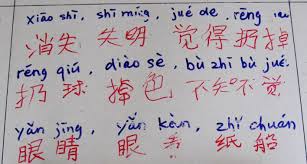 xiāo shī, shī míng, jué de, rēng
消失 失明 觉得 扔掉
rēng qiú, diào sè, bù zhī bù jué.
扔球 掉色 不知不觉
yǎn jīng, yǎn kàn, zhǐ chuán
眼睛 眼看 纸船